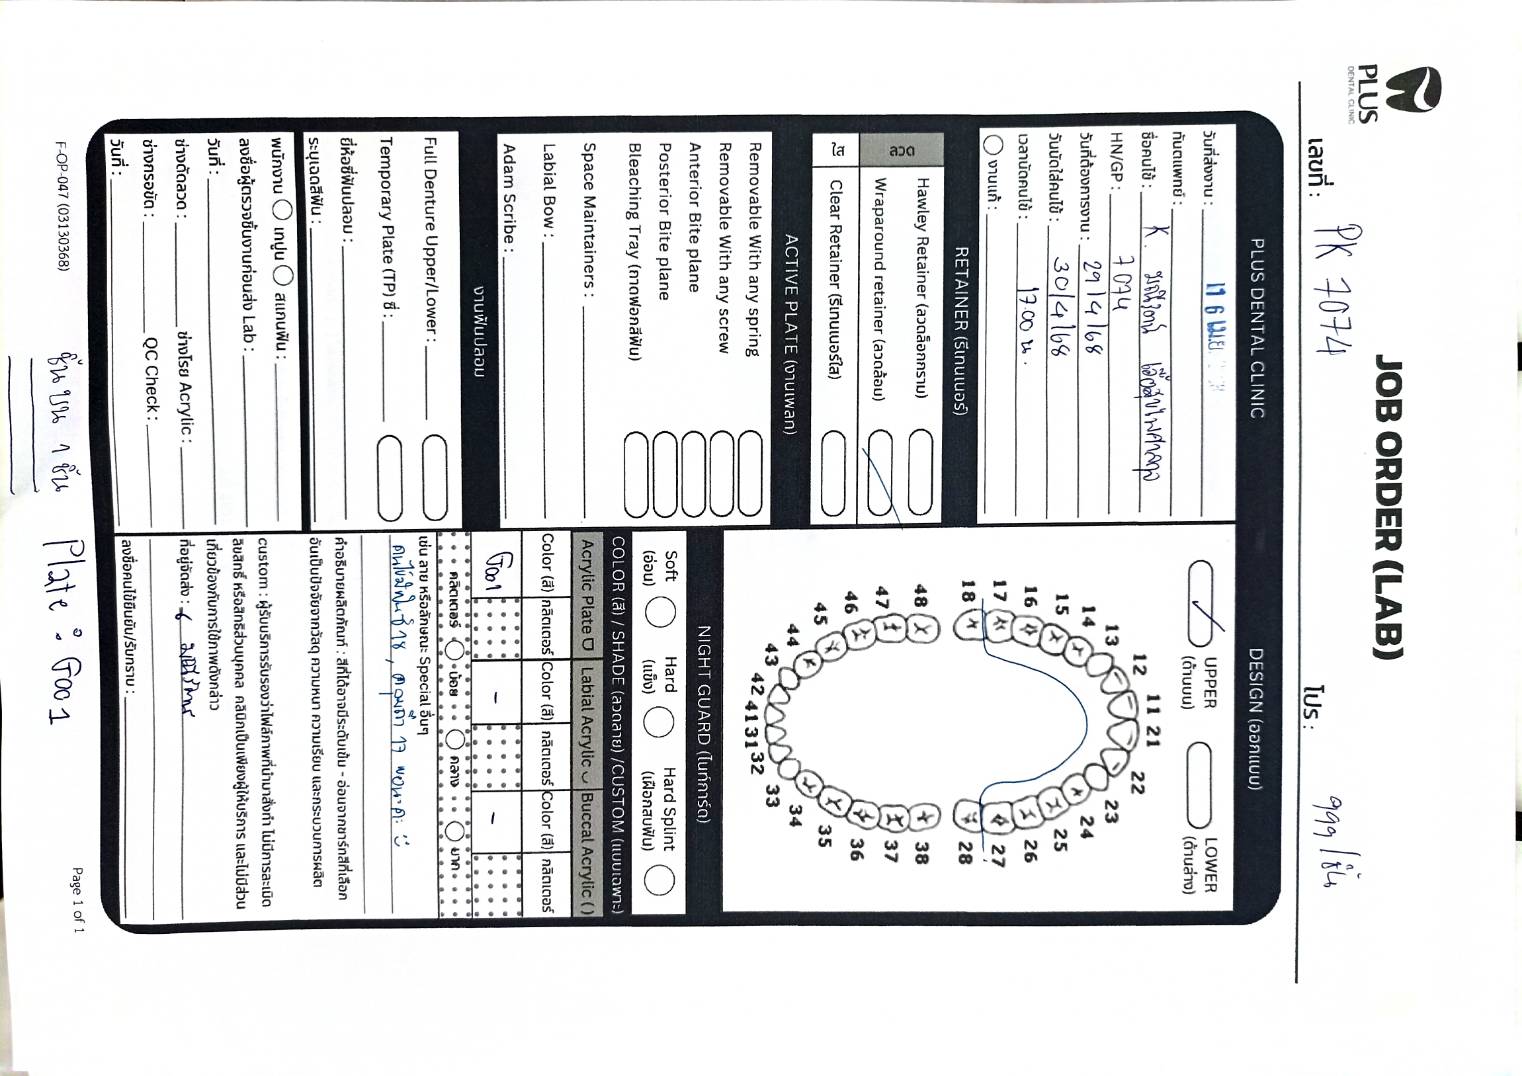 PLUS
DENTAL CLINIC
JOB ORDER (LAB)
เลขที่ : PK 7074
โปร : 999/ชิ้น
PLUS DENTAL CLINIC
วันที่ส่งงาน :
ทันตแพทย์ :
ชื่อคนไข้ : K.
HN/GP : 7074
วันที่ต้องการงาน : 29/4/68
วันนัดใส่คนไข้ : 30/4/68
เวลานัดคนไข้ : 17.00 น.
งานแก้ :
RETAINER (รีเทนเนอร์)
ลวด
Hawley Retainer (ลวดล็อกกราม)
Wraparound retainer (ลวดล้อม)
ใส
Clear Retainer (รีเทนเนอร์ใส)
ACTIVE PLATE (งานเพลท)
Removable With any spring
Removable With any screw
Anterior Bite plane
Posterior Bite plane
Bleaching Tray (ถาดฟอกสีฟัน)
Space Maintainers :
Labial Bow :
Adam Scribe :
งานฟันปลอม
Full Denture Upper/Lower :
Temporary Plate (TP) ซี่ :
ยี่ห้อซี่ฟันปลอม :
ระบุเฉดสีฟัน :
พนักงาน เทปูน สแกนฟัน :
ลงชื่อผู้ตรวจชิ้นงานก่อนส่ง Lab :
วันที่ :
ช่างดัดลวด : ช่างโรย Acrylic :
ช่างกรอขัด : QC Check :
วันที่ :
DESIGN (ออกแบบ)
UPPER (ด้านบน)
LOWER (ด้านล่าง)
11 21
12 22
13 23
14 24
15 25
16 26
17 27
18 28
48 38
47 37
46 36
45 35
44 34
43 33
42 41 31 32
NIGHT GUARD (ไนท์การ์ด)
Soft (อ่อน)
Hard (แข็ง)
Hard Splint (เฝือกสบฟัน)
COLOR (สี) / SHADE (ลวดลาย) /CUSTOM (แบบเฉพาะ)
Acrylic Plate Labial Acrylic Buccal Acrylic ( )
Color (สี) กลิตเตอร์ Color (สี) กลิตเตอร์ Color (สี) กลิตเตอร์
G001 - -
กลิตเตอร์ น้อย กลาง มาก
เช่น ลาย หรือลักษณะ Special อื่นๆ
คำอธิบายผลิตภัณฑ์ : สีที่ได้อาจมีระดับเข้ม - อ่อนจากชาร์ทสีที่เลือก
อันเป็นปัจจัยจากวัสดุ ความหนา ความเรียบ และกระบวนการผลิต
custom : ผู้รับบริการรับรองว่าไฟล์ภาพที่นำมาสั่งทำ ไม่มีการละเมิด
ลิขสิทธิ์ หรือสิทธิส่วนบุคคล คลินิกเป็นเพียงผู้ให้บริการ และไม่มีส่วน
เกี่ยวข้องกับการใช้ภาพดังกล่าว
ที่อยู่จัดส่ง :
ลงชื่อคนไข้ยืนยัน/รับทราบ :
F-OP-047 (03130368)
Page 1 of 1
ชิ้นบน 1 ชิ้น Plate : G001